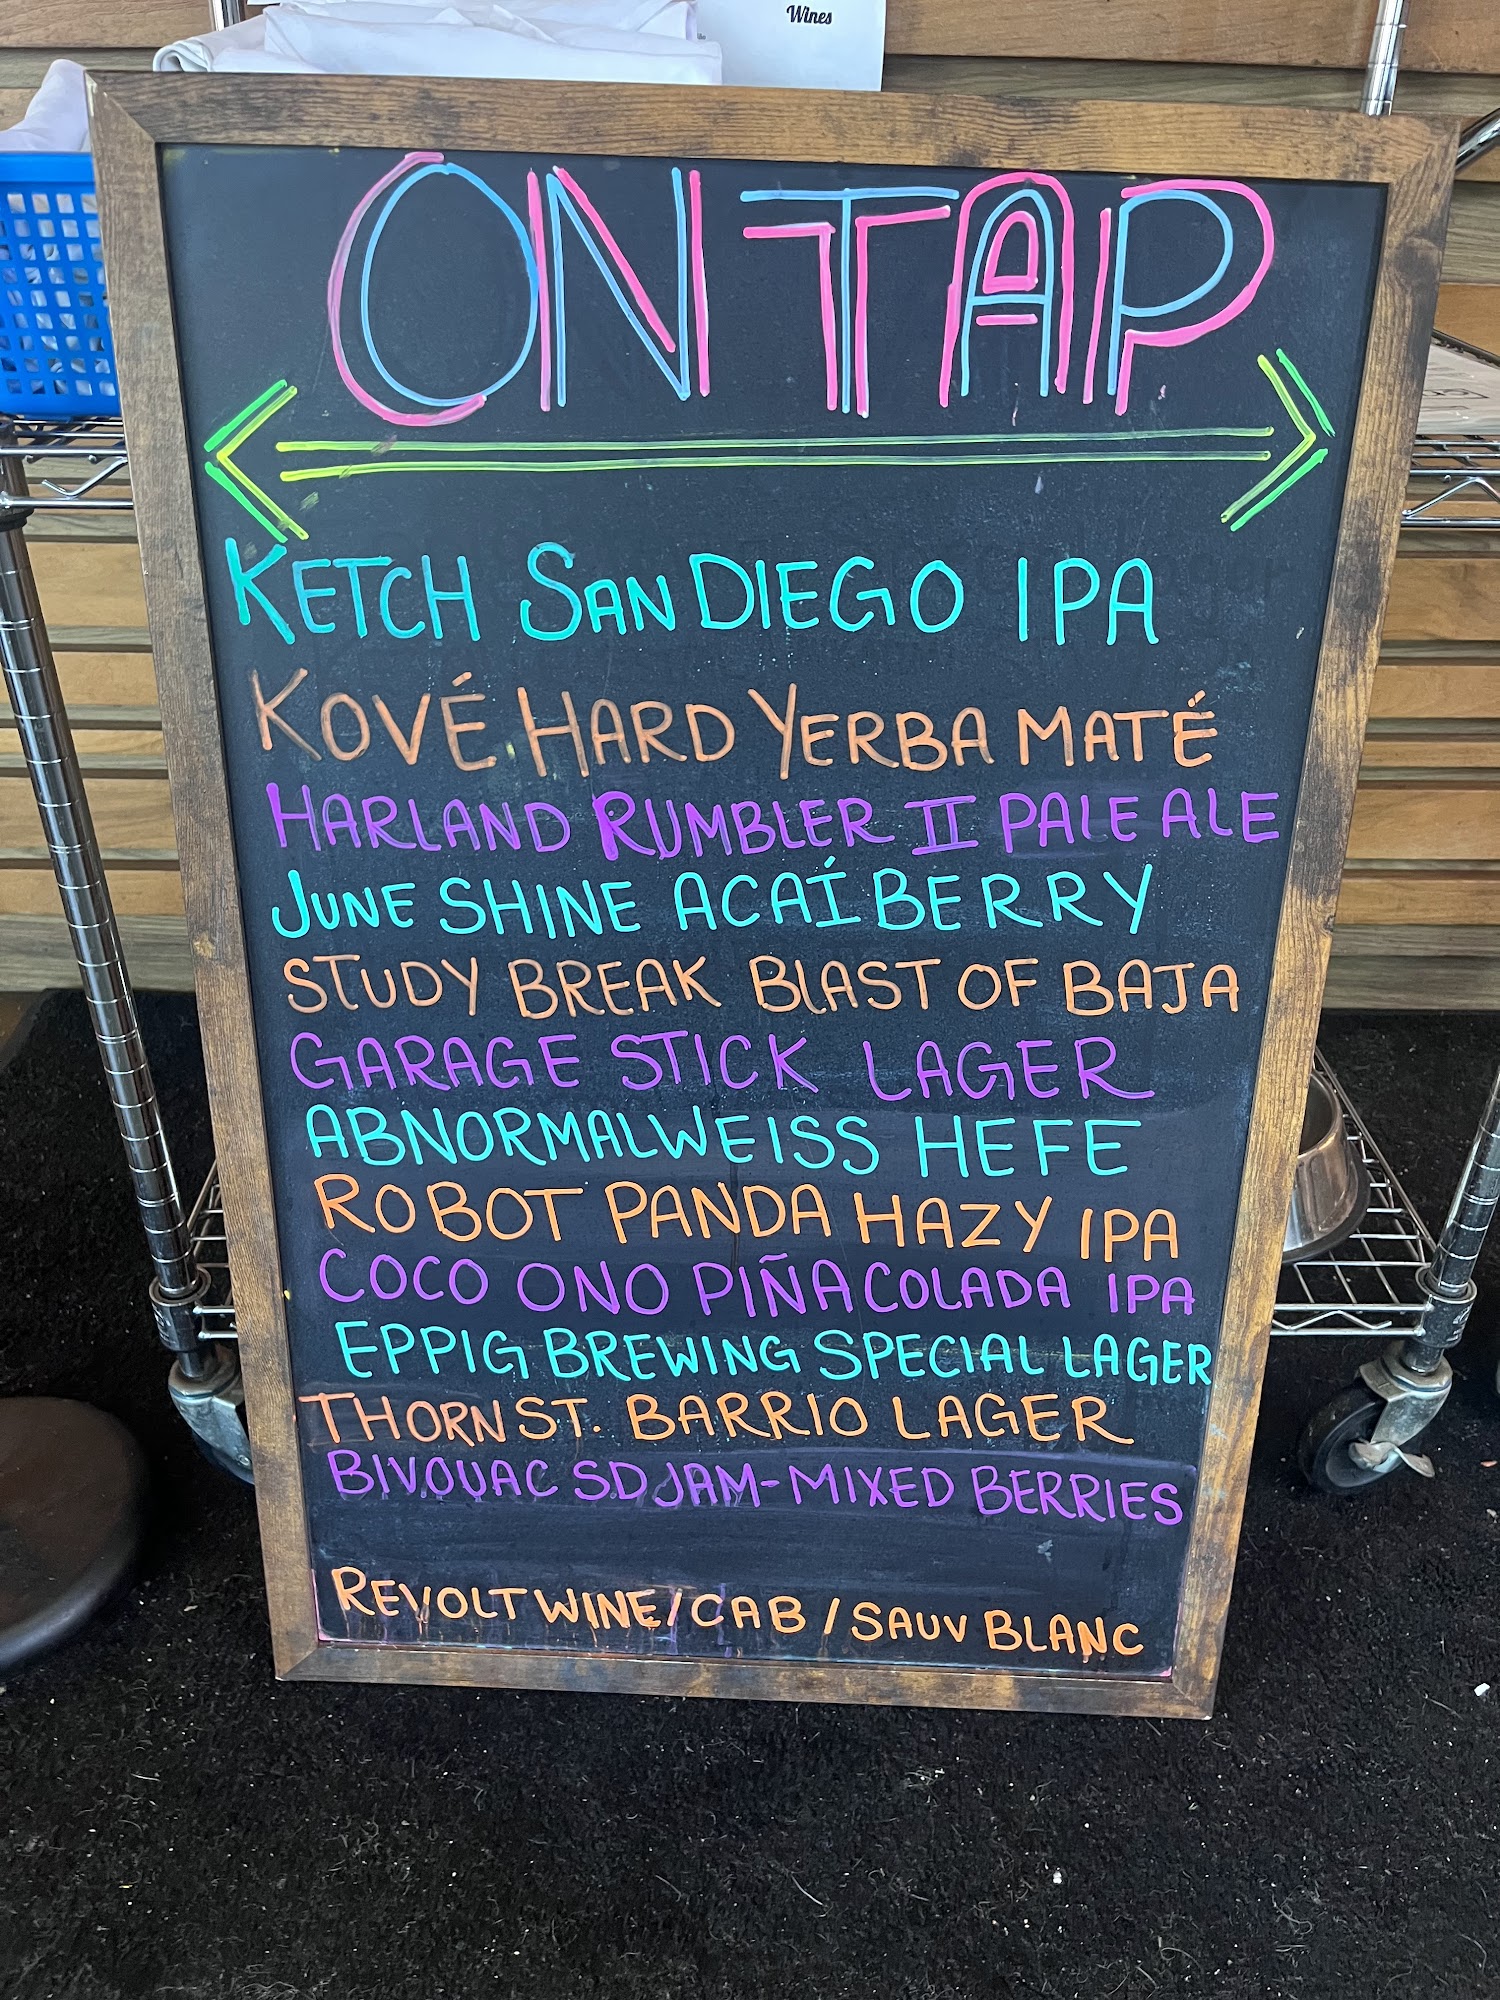 Wines
ON TAP
KETCH SAN DIEGO IPA
KOVÉ HARD YERBA MATÉ
HARLAND RUMBLER II PALE ALE
JUNE SHINE ACAÍ BERRY
STUDY BREAK BLAST OF BAJA
GARAGE STICK LAGER
ABNORMALWEISS HEFE
ROBOT PANDA HAZY IPA
COCO ONO PIÑA COLADA IPA
EPPIG BREWING SPECIAL LAGER
THORN ST. BARRIO LAGER
BIVOUAC SD JAM-MIXED BERRIES
REVOLT WINE/CAB/SAUV BLANC